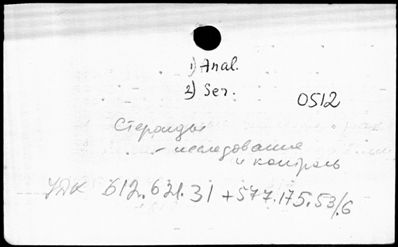 1) Anal.
2) Ser.
0512
Стероиды
- исследование
и контроль
УДК 612.621.31 + 577.175.53/.6